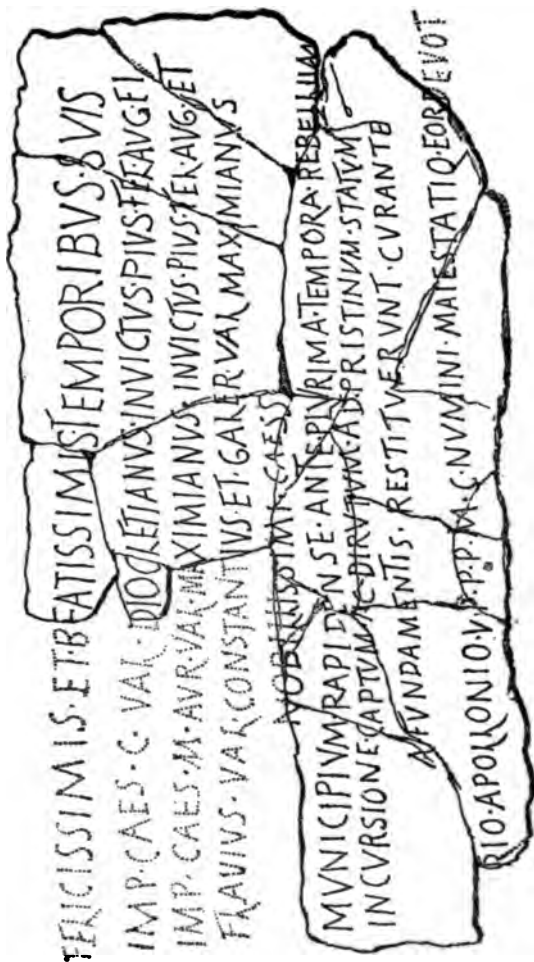 FELICISSIMIS·ET BEATISSIMIS TEMPORIBVS·SVIS
IMP·CAES·C·VAL·DIOCLETIANVS·INVICTVS·PIVS·FEL·AVG·ET
IMP·CAES·M·AVR·VAL·MAXIMIANVS·INVICTVS·PIVS·FEL·AVG·ET
FLAVIVS·VAL·CONSTANTIVS·ET·GALER·VAL·MAXIMIANVS
NOBILISSIMI·CAESS
MVNICIPIVM·RAPIDENSE·ANTE·PLVRIMA·TEMPORA·REBELLIVM
INCVRSIONE·CAPTVM·AC·DIRVTVM·AD·PRISTINVM·STATVM
A FVNDAMENTIS·RESTITVERVNT·CVRANTE
RIO·APOLLONIO·V·P·P·P·M·C·NVMINI·MAIESTATIQ·EOR·DEVOT